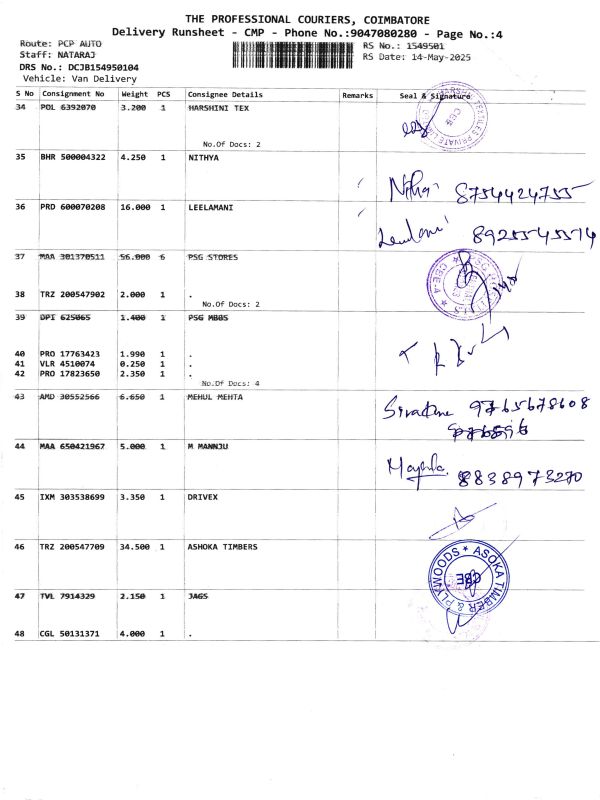 THE PROFESSIONAL COURIERS, COIMBATORE
Delivery Runsheet - CMP - Phone No.:9047080280 - Page No.:4
Route: PCP AUTO
RS No.: 1549501
Staff: NATARAJ
RS Date: 14-May-2025
DRS No.: DCJB154950104
Vehicle: Van Delivery
S No Consignment No Weight PCS Consignee Details Remarks Seal & Signature
34 POL 6392070 3.200 1 HARSHINI TEX
No.Of Docs: 2
35 BHR 500004322 4.250 1 NITHYA
8754424755
36 PRD 600070208 16.000 1 LEELAMANI
8925545574
37 MAA 301370511 56.000 6 PSG STORES
38 TRZ 200547902 2.000 1 .
No.Of Docs: 2
39 DPI 625065 1.400 1 PSG MBBS
40 PRO 17763423 1.990 1 .
41 VLR 4510074 0.250 1 .
42 PRO 17823650 2.350 1 .
No.Of Docs: 4
43 AMD 30552566 6.650 1 MEHUL MEHTA
9765678608
44 MAA 650421967 5.000 1 M MANNJU
8838973270
45 IXM 303538699 3.350 1 DRIVEX
46 TRZ 200547709 34.500 1 ASHOKA TIMBERS
ASOKA TIMBER & PLYWOODS
CBE
47 TVL 7914329 2.150 1 JAGS
48 CGL 50131371 4.000 1 .